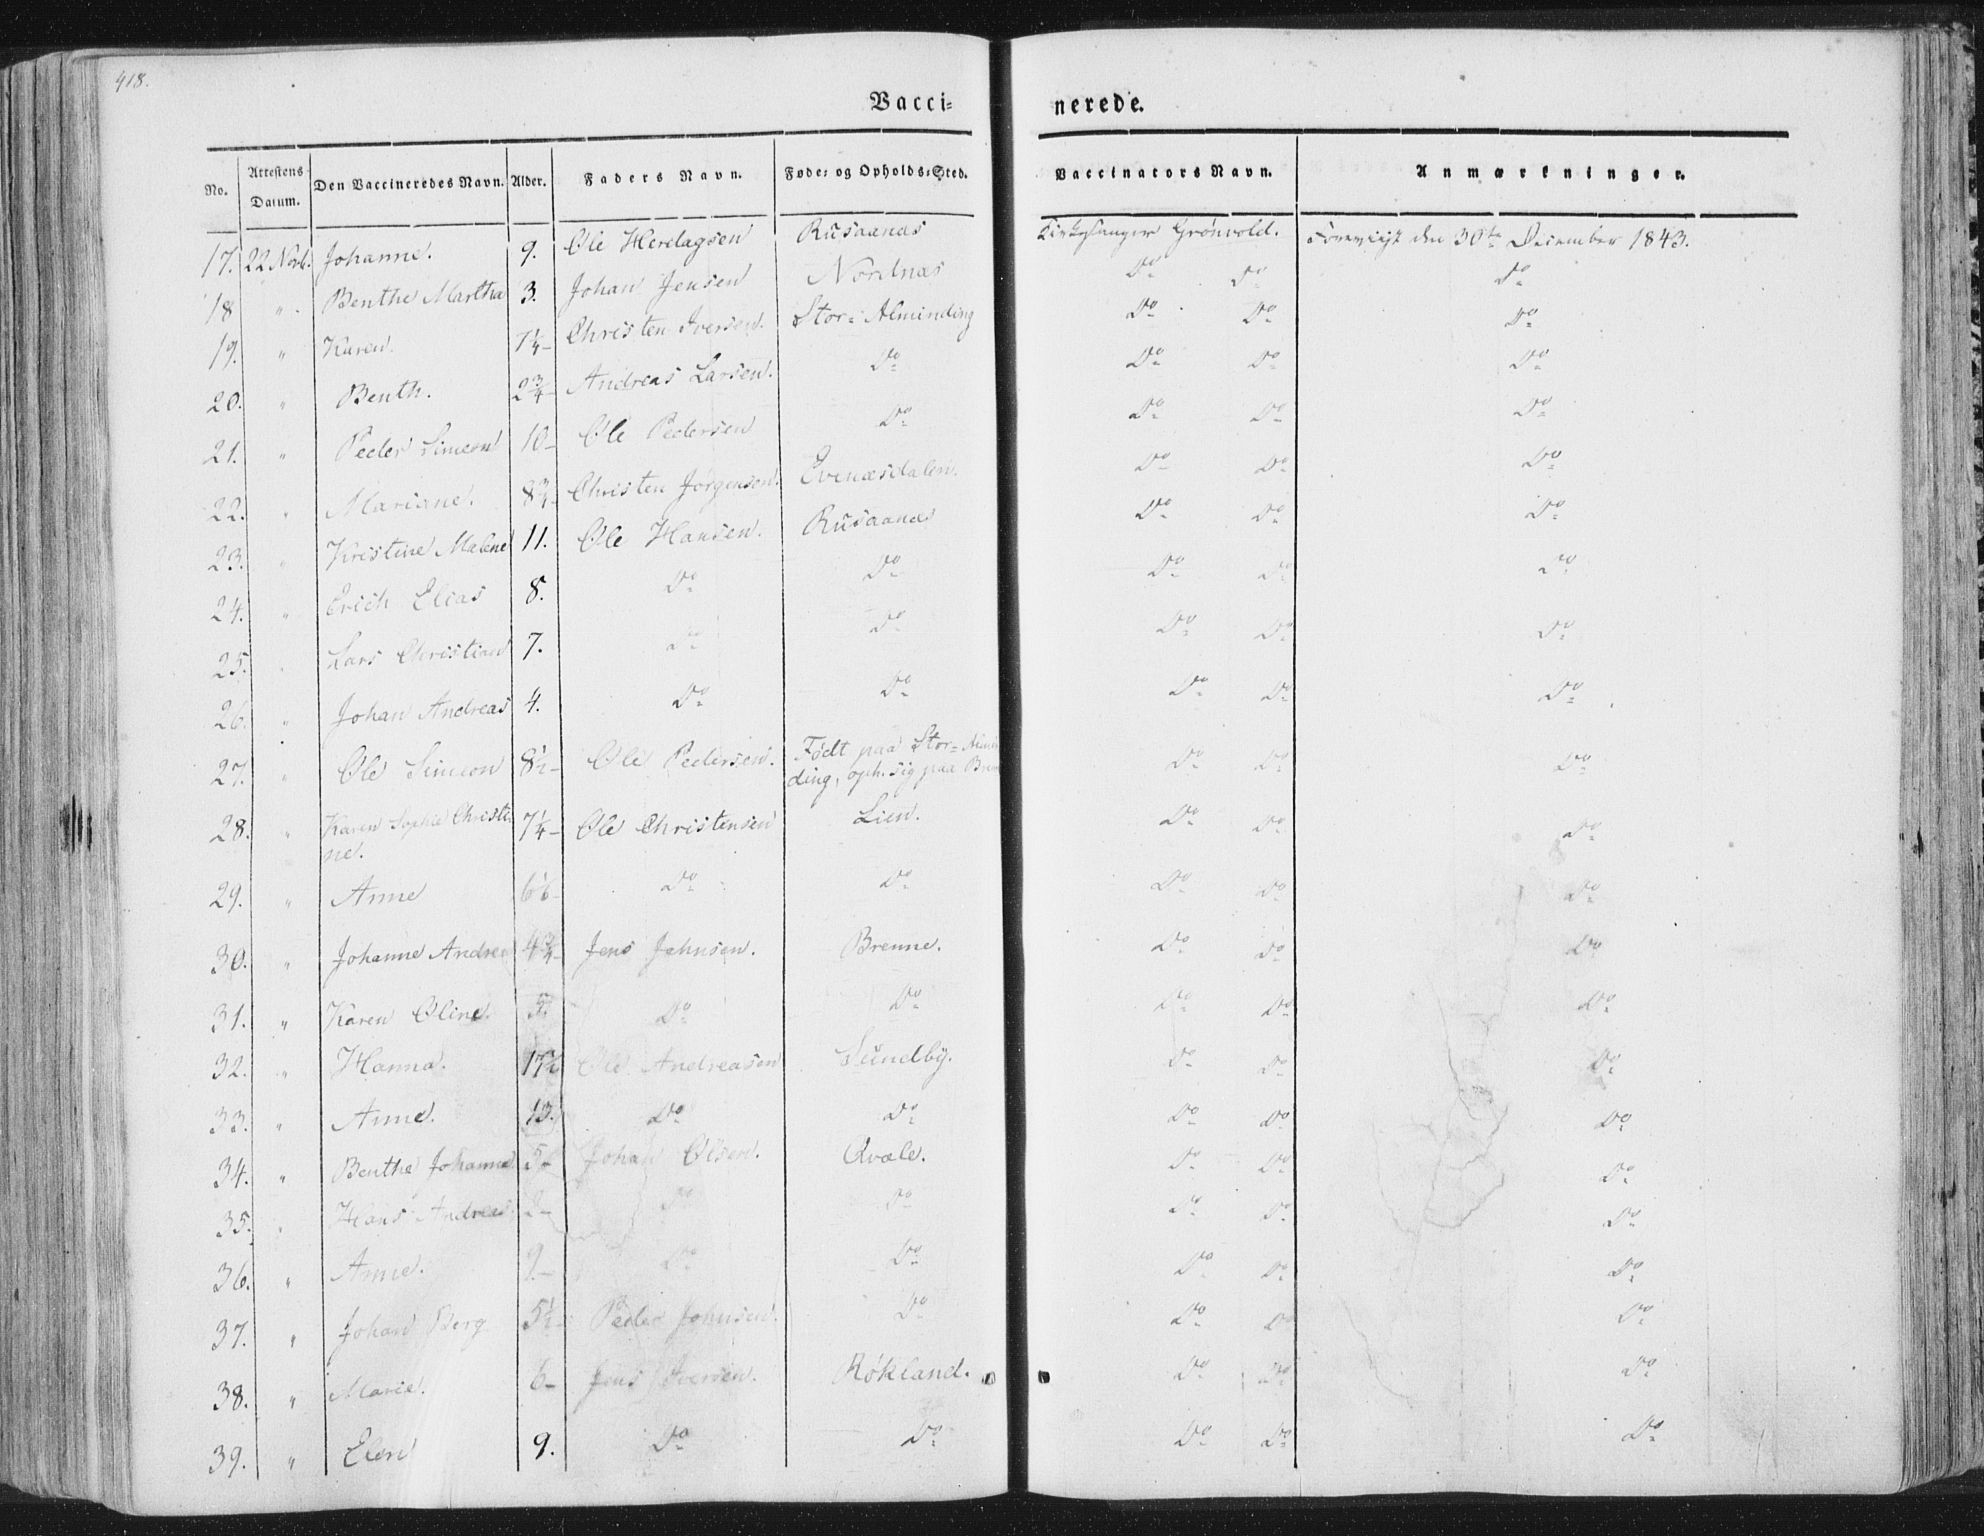 418.
Vacci= nerede.
No. Attestens Datum. Den Vaccineredes Navn. Alder. Faders Navn. Føde= og Opholds=Sted. Vaccinators Navn. Anmærkninger.
17. 22 Novb. Johanne. 9. Ole Herdagsen Rusaanæs Kirkesanger Grönvold. Foreviist den 30te December 1843.
18 " Benthe Martha 3. Johan Jensen Nordnæs Do Do Do
19. " Karen. 7¼ Christen Iversen. Stor=Alminding Do Do Do
20. " Benth. 2¾ Andreas Larsen. Do Do Do Do
21. " Peder Simeon 10 Ole Pedersen Do Do Do Do
22. " Mariane. 8¾ Christen Jörgensen. Evenæsdalen. Do Do Do
23. " Kristine Malene 11. Ole Hansen. Rusaanæs Do Do Do
24. " Erich Elias 8. Do Do Do Do Do
25. " Lars Christian 7. Do Do Do Do Do
26. " Johan Andreas 4. Do Do Do Do Do
27. " Ole Simeon 8½ Ole Pedersen. Födt paa Stor=Almin
ding, oph. sig paa Do Do Do
28. " Karen Sophie Christi 7¼ Ole Christensen Lien. Do Do Do
ne.
29. " Anne Do Do Do Do Do
30. " Johanne Andrea 4¾ Jens Jahnsen. Brenne. Do Do Do
31. " Karen Oline. Do Do Do Do Do
32. " Hanna. 17½ Ole Andreasen Sundby. Do Do Do
33. " Anne. 13. Do Do Do Do Do
34. " Benthe Johanna 5 Johan Olsen. Qvæle. Do Do Do
35. " Hans Andreas 2 Do Do Do Do Do
36. " Anne. 9 Do Do Do Do Do
37. " Johan Berg 5½ Peder Johnsen. Do Do Do Do
38. " Marie. 6 Jens Iversen. Røkland. Do Do Do
39. " Elen 9. Do Do Do Do Do